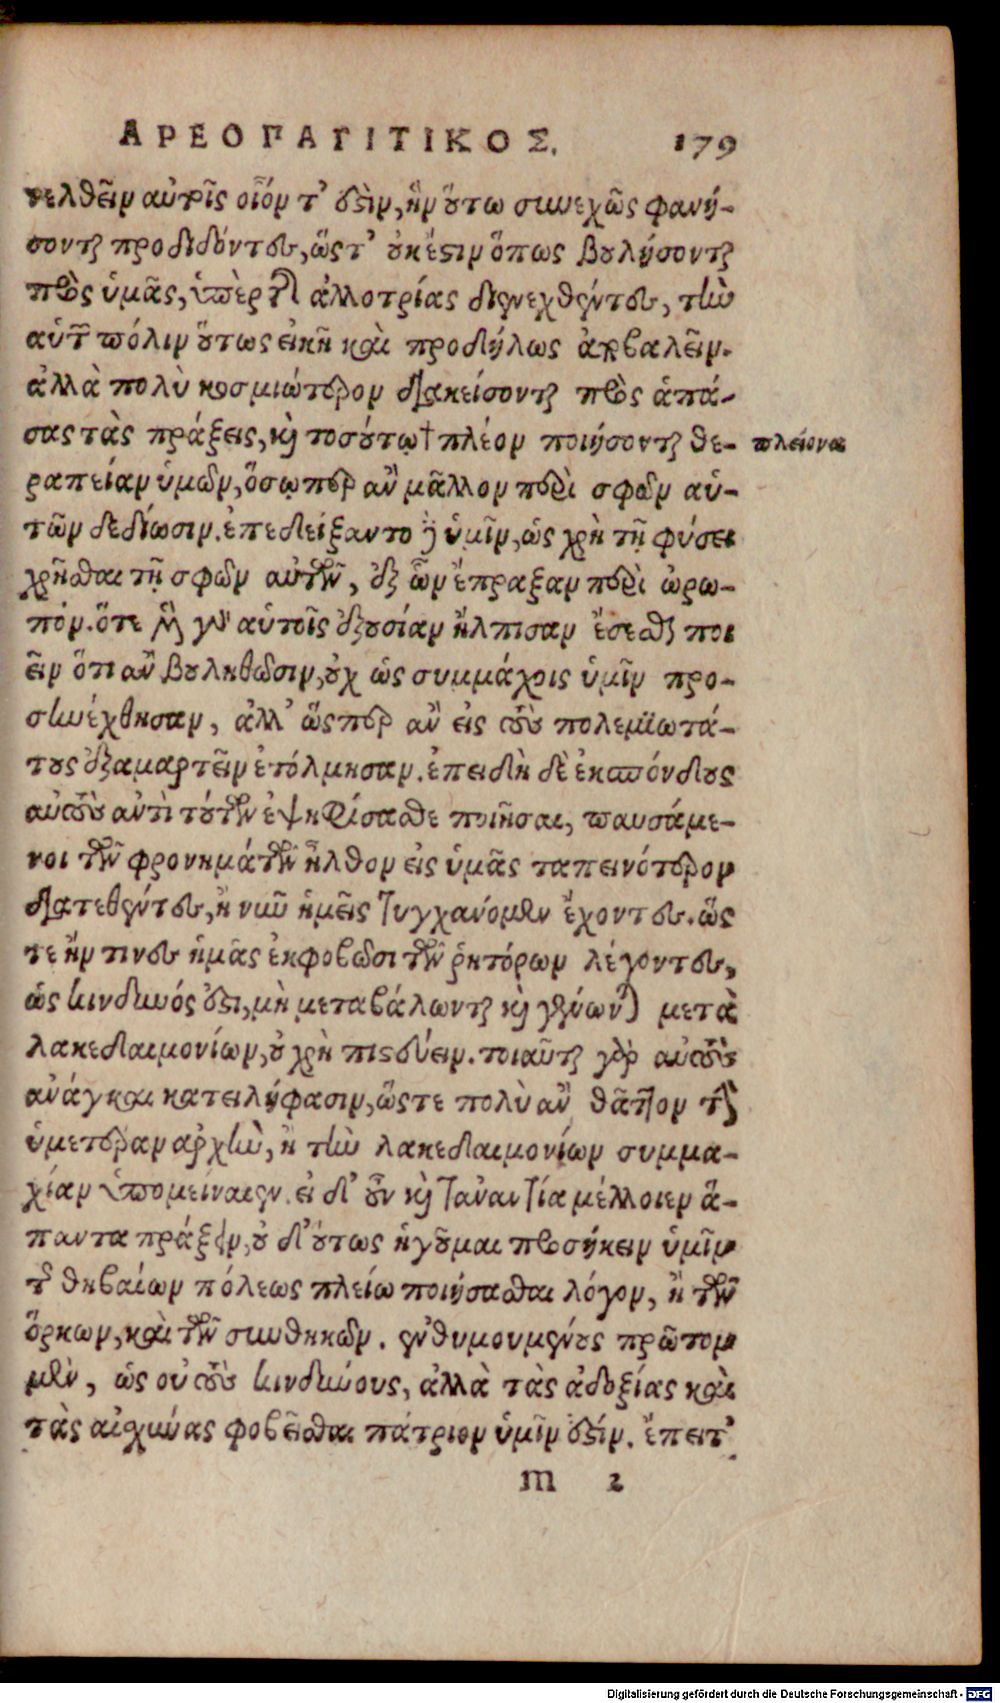 ΑΡΕΟΠΑΓΙΤΙΚΟΣ. 179
νελθεῖν αὐτοῖς οἷόν τ' ἐςὶν, ἢν οὕτω συνεχῶς φανή-
σονται προδιδόντες, ὥς τ' οὐκ ἔςιν ὅπως βουλήσονται
πρὸς ὑμᾶς, ὑπὲρ τῆς ἀλλοτρίας διενεχθέντες, τὴν
αὑτῶν πόλιν οὕτως εἰκῆ καὶ προδήλως ἐκβαλεῖν.
ἀλλὰ πολὺ κοσμιώτερον διακείσονται πρὸς ἁπά-
σας τὰς πράξεις, καὶ τοσούτῳ † πλέον ποιήσονται θε-
πλείονα
ραπείαν ὑμῶν, ὅσῳπερ ἂν μᾶλλον περὶ σφῶν αὑ-
τῶν δεδίωσιν. ἐπεδείξαντο δ' ὑμῖν, ὡς χρὴ τῇ φύσει
χρῆσθαι τῇ σφῶν αὐτῶν, ἐξ ὧν ἔπραξαν περὶ ὠρω-
πόν. ὅτε μὲν γὰρ αὑτοῖς ἐξουσίαν ἤλπισαν ἔσεσθαι ποι
εῖν ὅτι ἂν βουληθῶσιν, οὐχ ὡς συμμάχοις ὑμῖν προ-
σηνέχθησαν, ἀλλ' ὥσπερ ἂν εἰς τοὺς πολεμιωτά-
τους ἐξαμαρτεῖν ἐτόλμησαν. ἐπειδὴ δὲ ἐκσπόνδους
αὐτοὺς ἀντὶ τούτων ἐψηφίσασθε ποιῆσαι, παυσάμε-
νοι τῶν φρονημάτων ἦλθον εἰς ὑμᾶς ταπεινότερον
διατεθέντες, ἢ νῦν ἡμεῖς τυγχάνομεν ἔχοντες. ὥς
τε ἤν τινες ἡμᾶς ἐκφοβῶσι τῶν ῥητόρων λέγοντες,
ὡς κίνδυνός ἐςι, μὴ μεταβάλωνται καὶ γένωνται μετὰ
λακεδαιμονίων, οὐ χρὴ πιςεύειν. τοιαῦται γὰρ αὐτοὺς
ἀνάγκαι κατειλήφασιν, ὥςτε πολὺ ἂν θᾶττον τὴν
ὑμετέραν ἀρχὴν, ἢ τὴν λακεδαιμονίων συμμα-
χίαν ὑπομείναιεν. εἰ δ' οὖν καὶ τἀναντία μέλλοιεν ἅ-
παντα πράξειν, οὐδ' οὕτως ἡγοῦμαι προσήκειν ὑμῖν
τῆς θηβαίων πόλεως πλείω ποιήσασθαι λόγον, ἢ τῶν
ὅρκων, καὶ τῶν συνθηκῶν. ἐνθυμουμένους πρῶτον
μὲν, ὡς οὐ τοὺς κινδύνους, ἀλλὰ τὰς ἀδοξίας καὶ
τὰς αἰσχύνας φοβεῖσθαι πάτριον ὑμῖν ἐςίν. ἔπειτ'
m 2
Digitalisierung gefördert durch die Deutsche Forschungsgemeinschaft - DFG